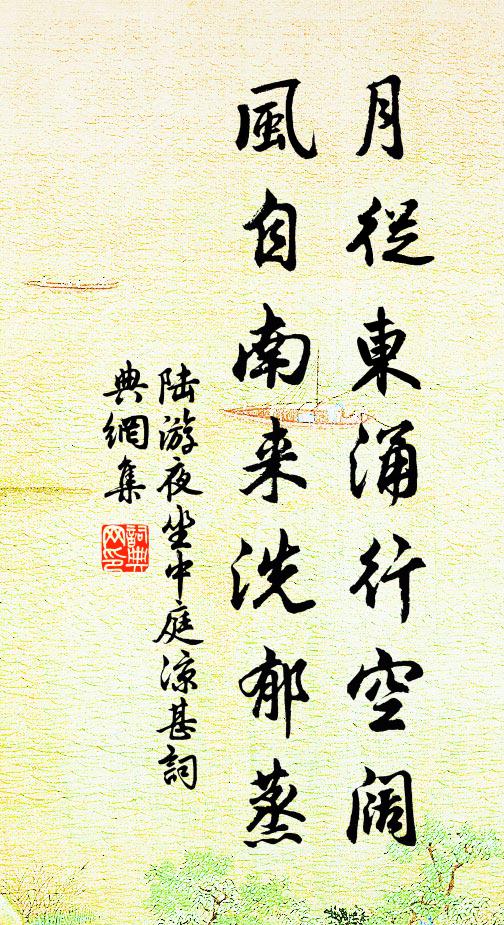 月從東涌行空闊
風自南来洗郁蒸
陆游夜坐中庭涼甚詞
典網集
詞典
网印